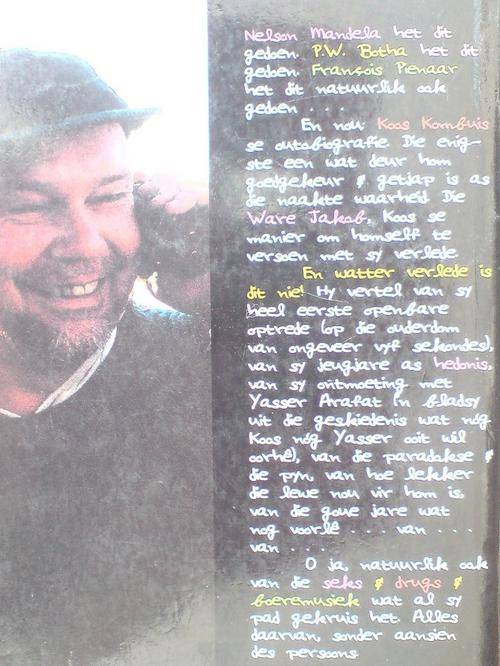 Nelson Mandela het dit
gedoen. P.W. Botha het dit
gedoen. François Pienaar
het dit natuurlik ook
gedoen . . .
En nou: Koos Kombuis
se outobiografie. Die enig-
ste een wat deur hom
goedgekeur & getjap is as
die naakte waarheid. Die
Ware Jakob, Koos se
manier om homself te
versoen met sy verlede.
En watter verlede is
dit nie! Hy vertel van sy
heel eerste openbare
optrede (op die ouderdom
van ongeveer vyf sekondes),
van sy jeugjare as hedonis,
van sy ontmoeting met
Yasser Arafat (n bladsy
uit die geskiedenis wat nóg
Koos nóg Yasser ooit wil
oorhê), van die paradokse &
die pyn, van hoe lekker
die lewe nou vir hom is,
van die goue jare wat
nog voorlê . . . van . . . .
van . . . .
O ja, natuurlik ook
van die seks & drugs &
boeremusiek wat al sy
pad gekruis het. Alles
daarvan, sonder aansien
des persoons.